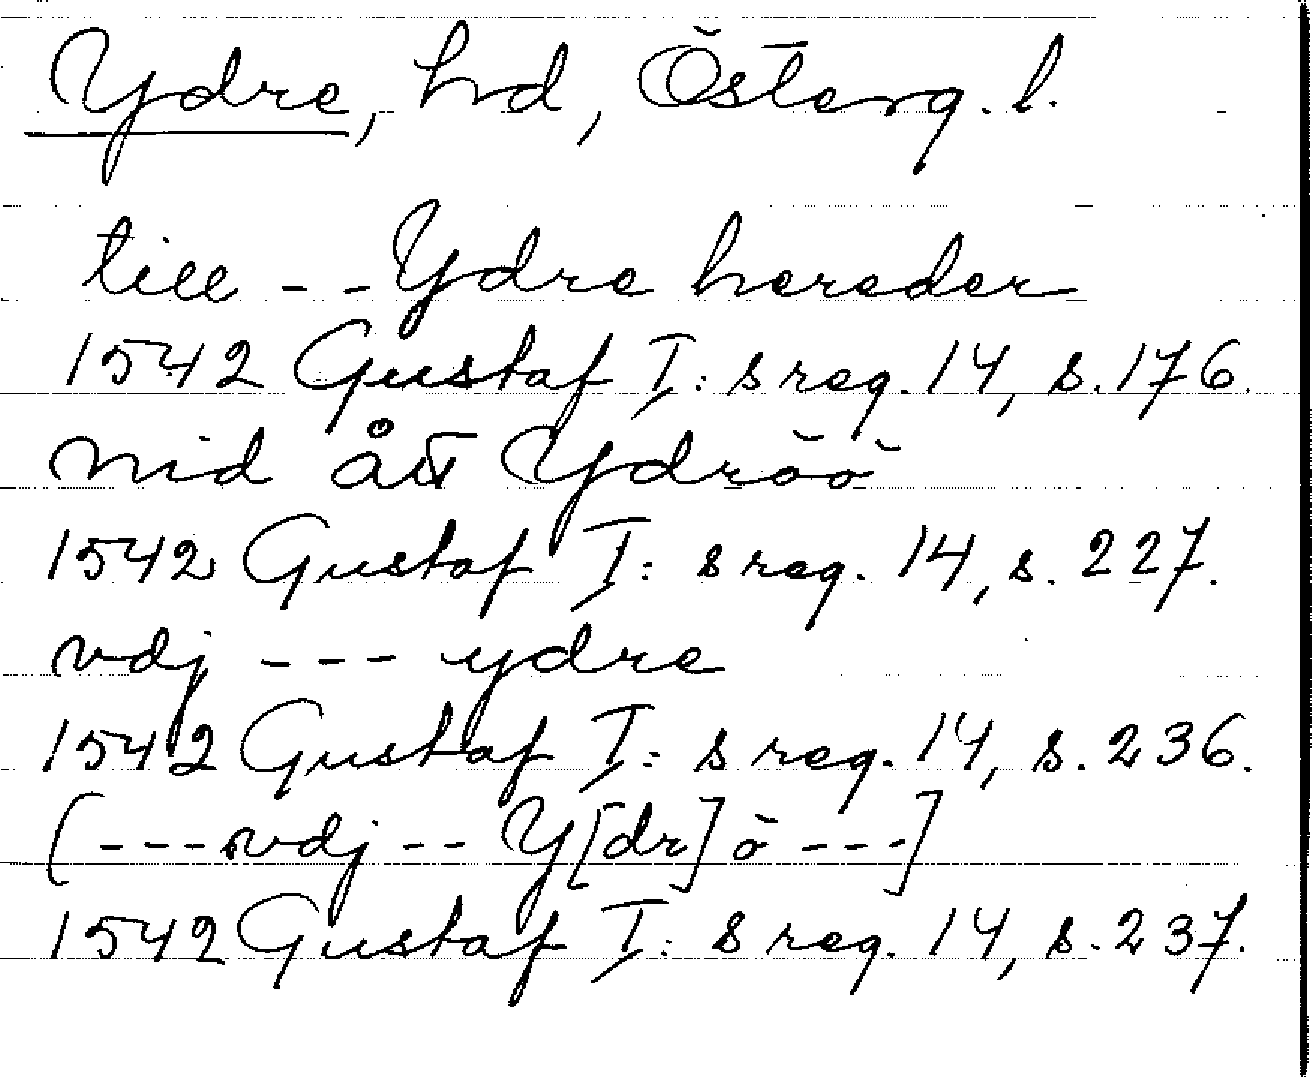 Ydre, hd, Österg. l.
till -- Ydre hereder
1542 Gustaf I: s reg. 14, s. 176.
nid ått Ydröö
1542 Gustaf I: s reg. 14, s. 227.
vdj --- ydre
1542 Gustaf I: s reg. 14, s. 236.
(--- vdj -- Y[dr]ö ---]
1542 Gustaf I: s reg. 14, s. 237.